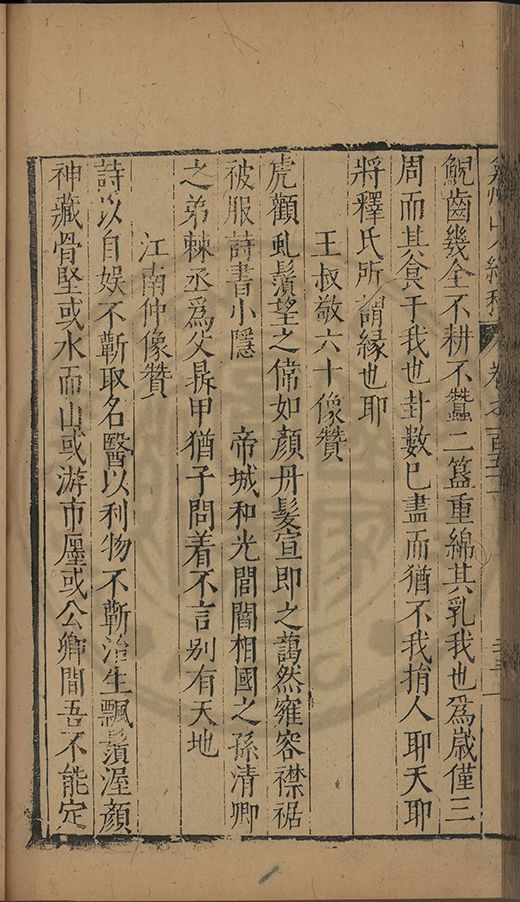 弇州山人續稿 卷之一百五十
鯢齒幾全不耕不蠶二簋重綿其乳我也爲歲僅三
周而其食于我也卦數已盡而猶不我捐人耶天耶
將釋氏所謂緣也耶
王叔敬六十像贊
虎顴虬鬚望之偉如顏丹髮宣即之藹然雍容襟裾
被服詩書小隱 帝城和光閭閻相國之孫清卿
之弟棘丞爲父鼎甲猶子問着不言别有天地
江南仲像贊
詩以自娱不蘄取名醫以利物不蘄治生飄鬚渥顏
神藏骨堅或水而山或游市廛或公卿間吾不能定